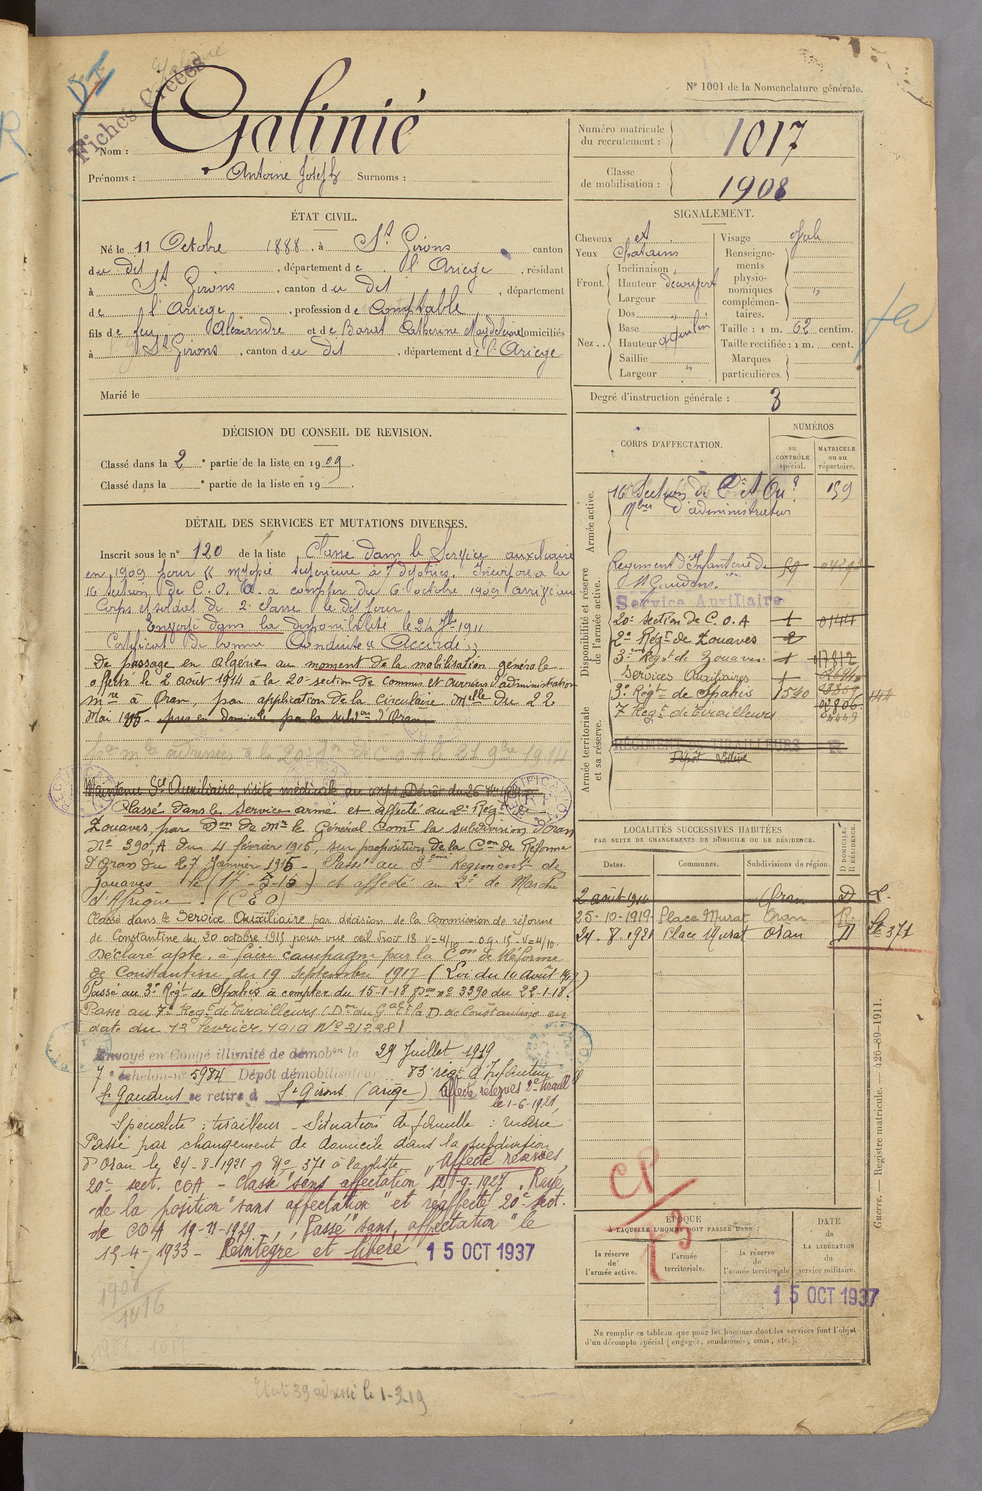 Fiches Créées
N° 1001 de la Nomenclature générale.
Nom : Galinié
Prénoms : Antoine Joseph Surnoms :
Numéro matricule du recrutement : 1017
Classe de mobilisation : 1908
ÉTAT CIVIL.
Né le 11 Octobre 1888, à St Girons canton
du dit, département de l'Ariege, résidant
à St Girons, canton du dit, département
de l'Ariege, profession de Comptable
fils de feu Alexandre et de Barat Catherine Magdeleine domiciliés
à St Girons, canton du dit, département de l'Ariege
Marié le
SIGNALEMENT.
Cheveux et
Yeux Chatains
Front. Inclinaison
Hauteur découvert
Largeur
Nez.. Dos
Base
Hauteur
Saillie
Largeur "
Visage ovale
Renseignements physionomiques complémentaires. "
Taille : 1 m. 62 centim.
Taille rectifiée : 1 m. cent.
Marques particulières.
Degré d'instruction générale : 3
DÉCISION DU CONSEIL DE REVISION.
Classé dans la 2e partie de la liste en 1909.
Classé dans la e partie de la liste en 19
DÉTAIL DES SERVICES ET MUTATIONS DIVERSES.
Inscrit sous le n° 120 de la liste Classé dans le Service auxiliaire
en 1909 pour "myopie supérieure à 7 dioptries. Incorporé à la
16 section de C. O. A. à compter du 6 octobre 1909 arrivé au
Corps et soldat de 2e classe le dit jour.
Envoyé dans la disponibilité le 24 7bre 1911
Certificat de bonne Conduite "Accordé"
De passage en Algérie au moment de la mobilisation générale
affecté le 2 août 1914 à la 20e section de Commis et ouvriers d'administration
mre à Oran, par application de la Circulaire Melle du 22
Mai 1915
Maintenu Sce Auxiliaire, visite médicale au corps
Classé dans le service armé et affecté au 2e Régt de
Zouaves, par Don de Mr le Général Comt la subdivision d'Oran
No 290/A du 4 février 1915, sur proposition de la Con de Réforme
d'Oran du 27 Janvier 1915 - Passé au 3eme Régiment de
Zouaves le (17-5-15) et affecté au 2e de Marche
d'Afrique. (C E O)
Classé dans le Service Auxiliaire par décision de la Commission de réforme
de Constantine du 20 octobre 1915 pour vue oeil droit 18 V=4/10 - o.g. 15 V=4/10
Déclaré apte à faire campagne par la Con de Réforme
de Constantine du 19 Septembre 1917 (Loi du 10 août 1917)
Passé au 3e Régt de Spahis à compter du 15-1-18 Don no 3390 du 22-1-18.
Passé au 7e Régt de Tirailleurs (Don du Gal Ct la D. de Constantine en
date du 13 février 1919 No 21238)
Envoyé en Congé illimité de démobon le 29 Juillet 1919
7e échelon no 5984 Dépôt démobilisateur 83 régt d'Infanterie
St Gaudens se retire à St Girons (Ariège) Affecté réserves 2e Tiraill
le 1-6-1921
Spécialité : tirailleur - Situation de famille : marié
Passé par changement de domicile dans la subdivision
d'Oran le 24-8-1921 No 371 à la liste "Affecté réserves
20e sect. COA - Classé "sans affectation" 12-9-1927. Rayé
de la position "sans affectation" et réaffecté 20e sect.
de COA 19-11-1929. Passé "sans affectation" le
15-4-1933 - Réintégré et libéré 15 OCT 1937
CORPS D'AFFECTATION.
NUMÉROS
au CONTRÔLE spécial.
MATRICULE ou au répertoire.
Armée active.
16e Section de Cis et Ou. 159
Mres d'administration
Disponibilité et réserve de l'armée active.
Régiment d'Infanterie de
St Gaudens.
Service Auxiliaire
20e section de C.O.A
2e Régt de Zouaves
3e Régt de Zouaves
Services Auxiliaires
3e Régt de Spahis 1540
7 Régt de Tirailleurs
Armée territoriale et sa réserve.
LOCALITÉS SUCCESSIVES HABITÉES
PAR SUITE DE CHANGEMENTS DE DOMICILE OU DE RÉSIDENCE.
Dates. Communes. Subdivisions de région. D. DOMICILE. R. RÉSIDENCE.
2 août 1914 Oran
25-10-1919 Place Murat Oran R
24-8-1921 Place Murat Oran D
CP
ÉPOQUE
À LAQUELLE L'HOMME DOIT PASSER DANS :
la réserve de l'armée active.
l'armée territoriale.
la réserve de l'armée territoriale
DATE de LA LIBÉRATION du service militaire.
15 OCT 1937
Ne remplir ce tableau que pour les hommes dont les services font l'objet
d'un décompte spécial (engagés, condamnés, omis, etc.).
Guerre. — Registre matricule. — 426-89-1911.